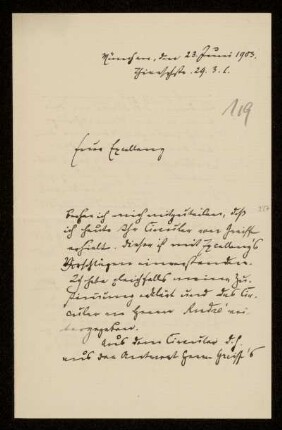 München, den 23. Juni 1903.
Thierschstr. 29. 3. l.
119
Euer Exzellenz
beehre ich mich mitzuteilen, daß
ich heute Ihr Circular von Greiff
erhielt. Dieser ist mit Excellenz's
Vorschlägen einverstanden.
Ich habe gleichfalls meine Zu-
stimmung erklärt und das Cir-
cular an Herrn wei-
tergegeben.
Aus dem Circular d. h.
aus der Antwort Herrn Greiff's